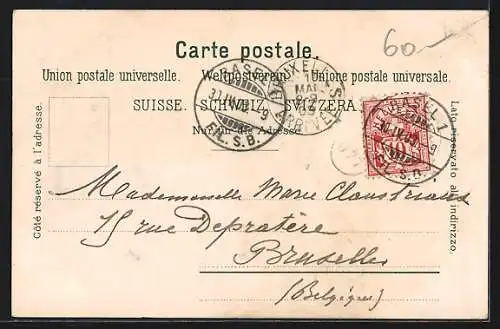 60
Carte postale.
Union postale universelle. Weltpostverein. Unione postale universale.
SUISSE. SCHWEIZ. SVIZZERA.
Nur für die Adresse.
Côté réservé à l'adresse.
Lato riservato all'indirizzo.
BASEL
BR.L.S.B.
BASEL 1
10
Mademoiselle Marie
15 rue Depratère
Bruxelles
(Belgique)